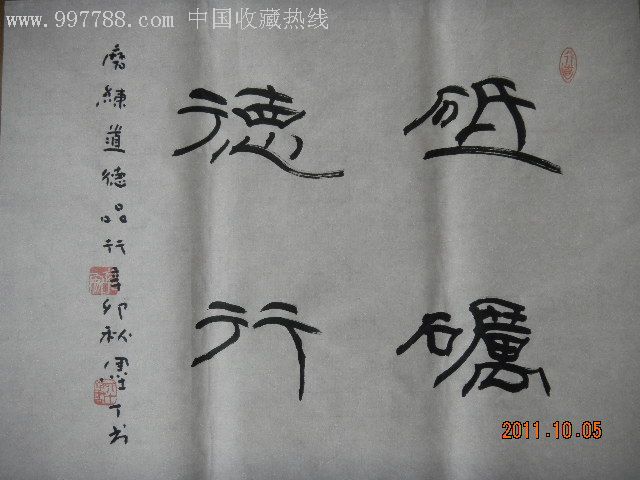 www.997788.com 中国收藏热线
砥礪
德行
磨練道德品行辛卯秋墨丁书
2011.10.05